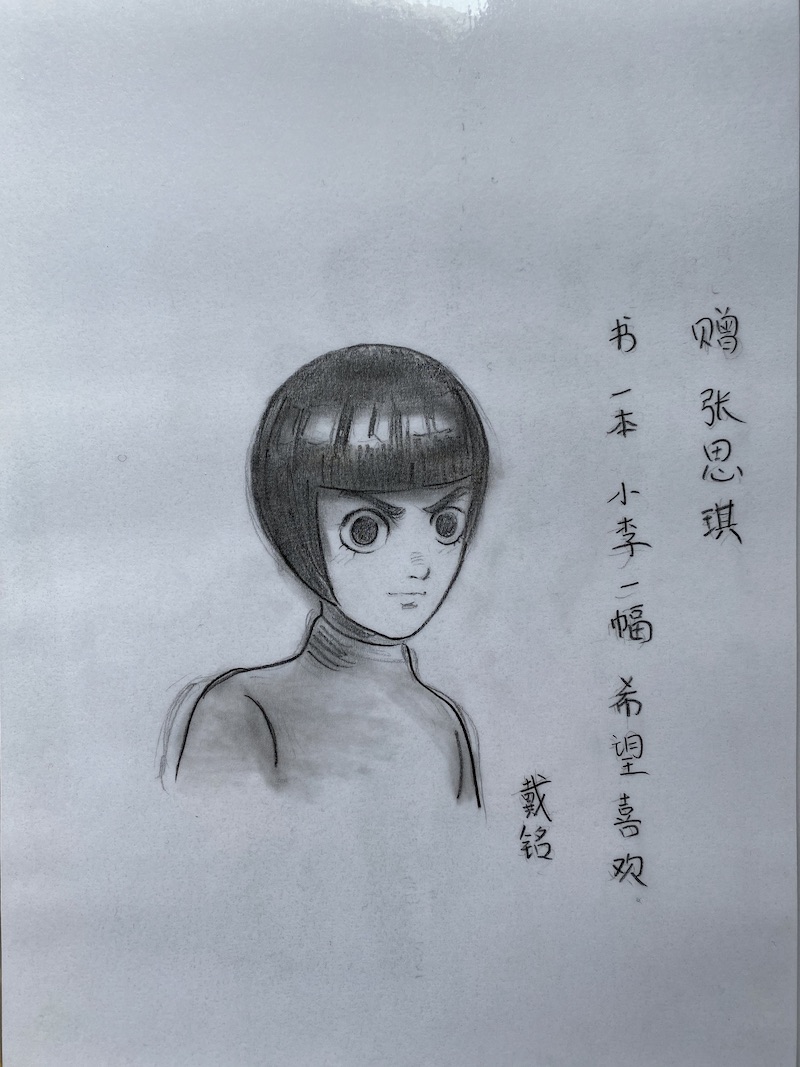 赠 张思琪
书一本 小李一幅 希望喜欢
戴铭